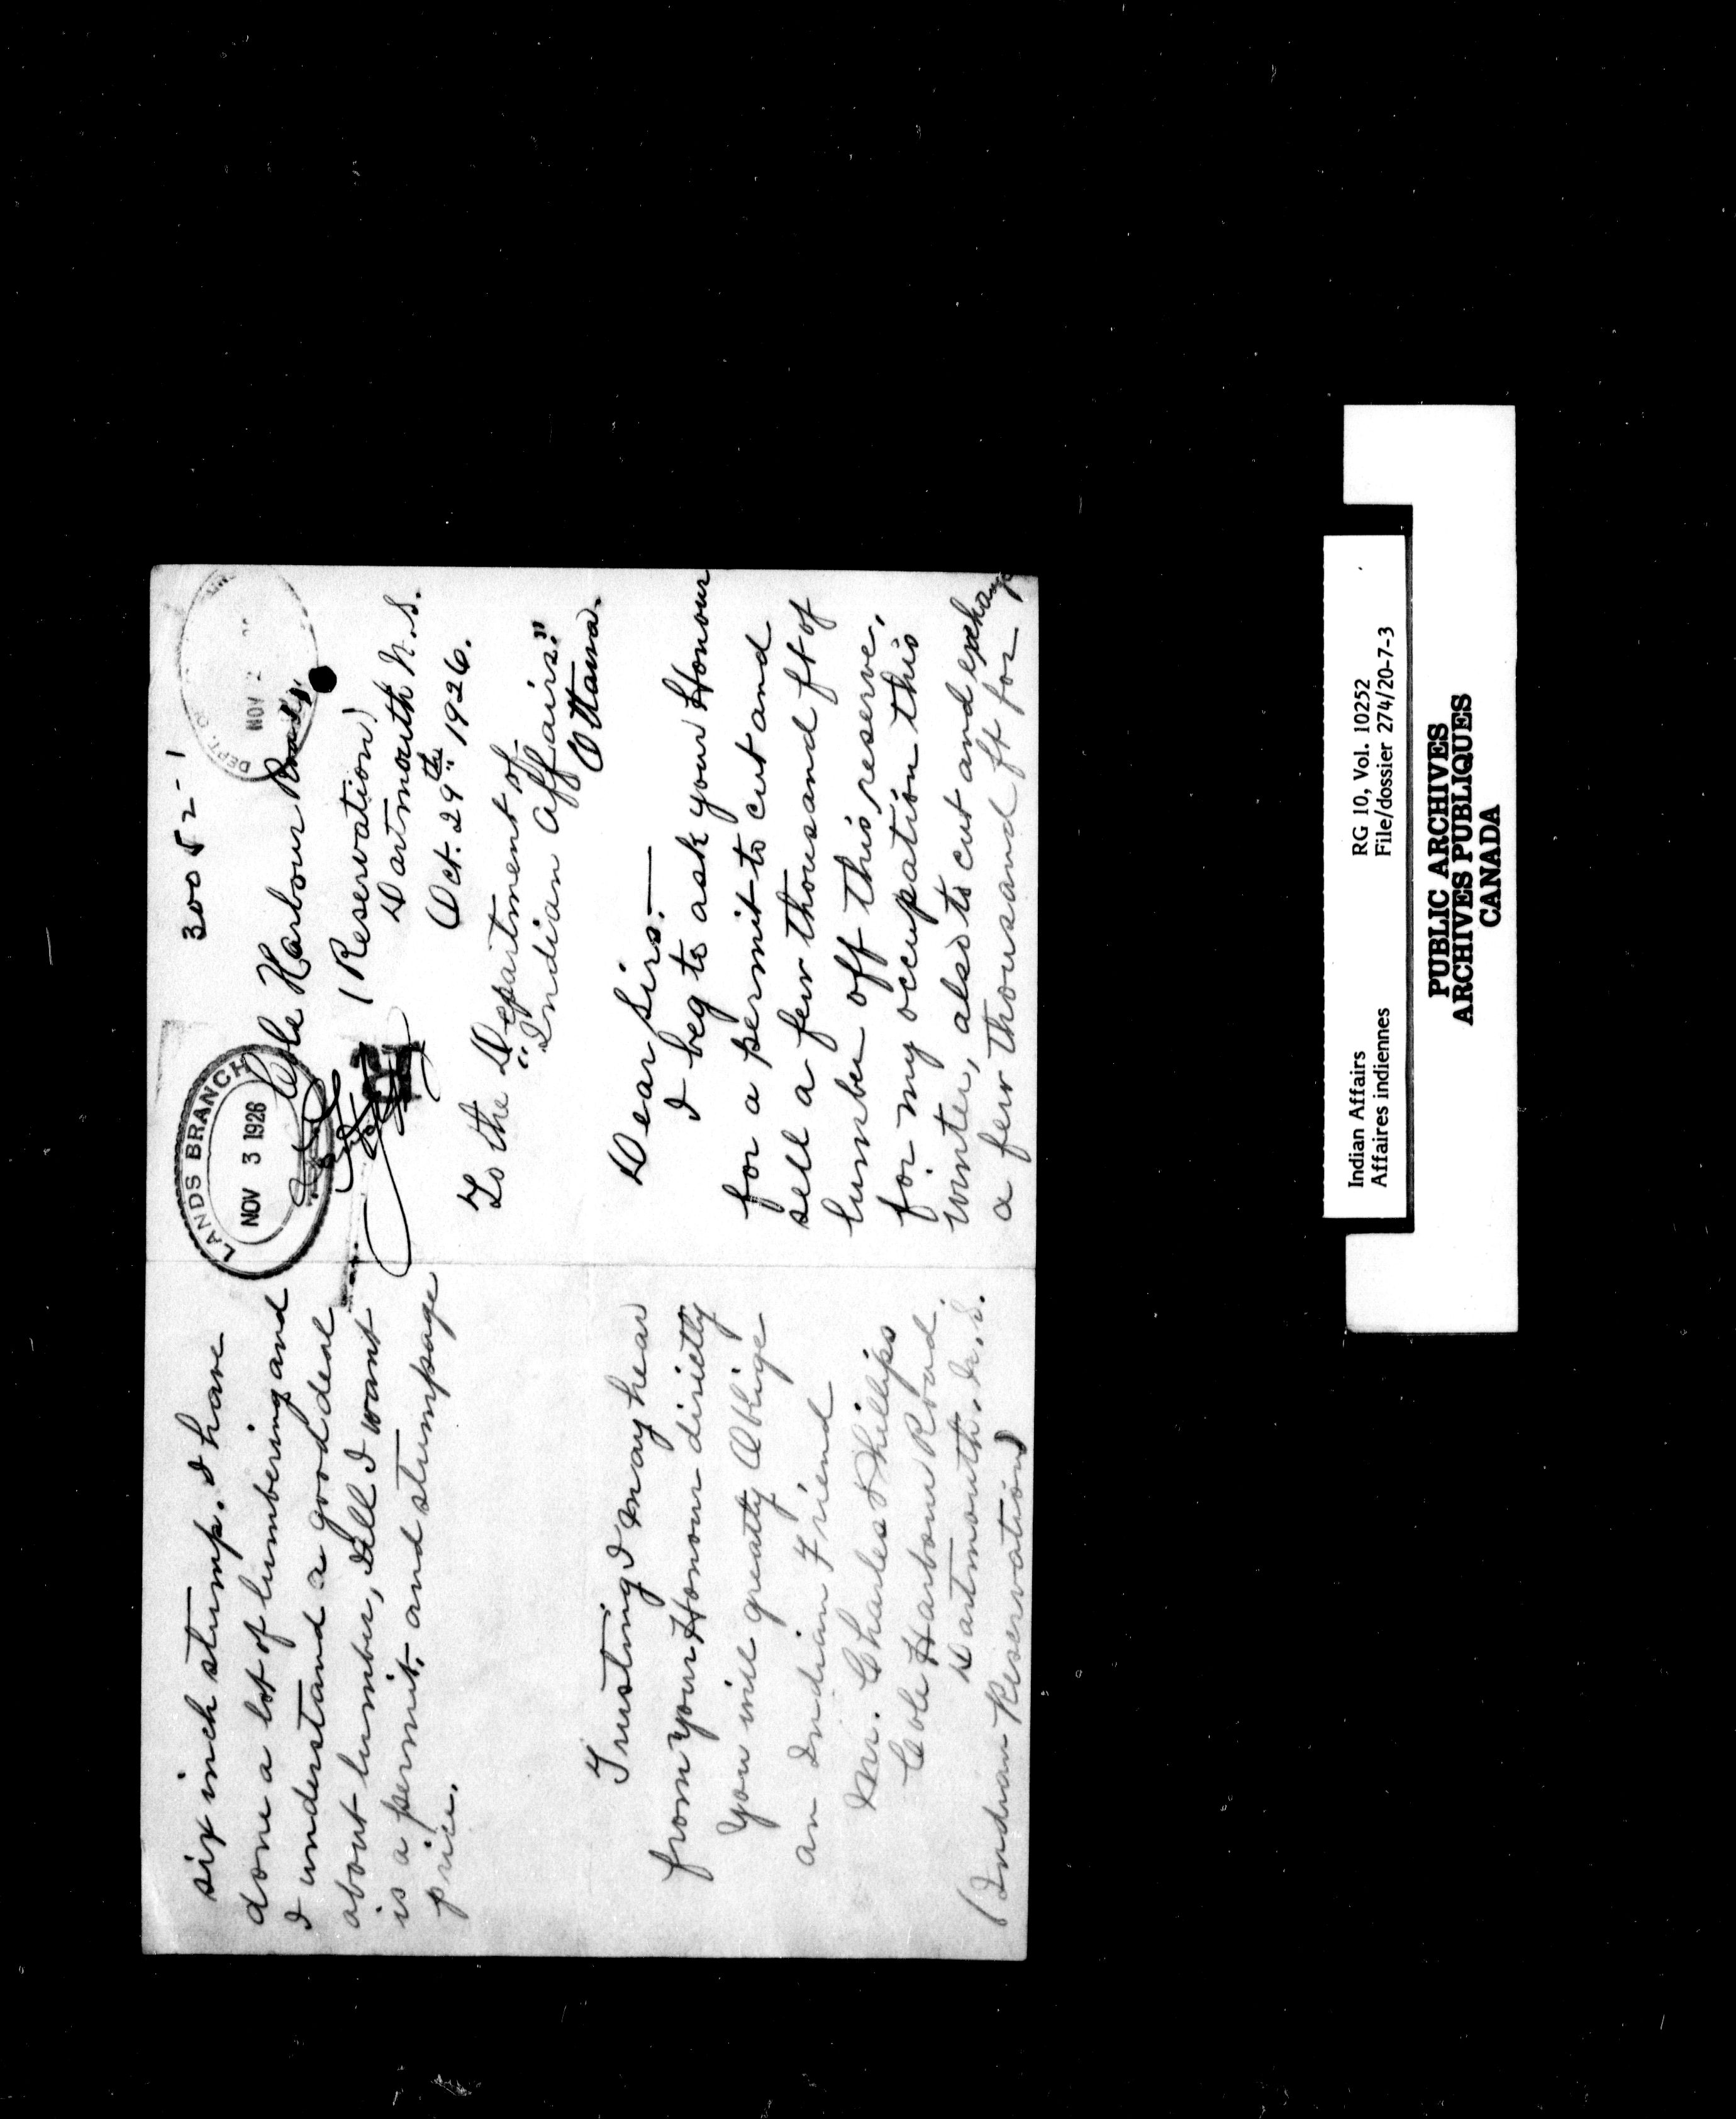 30052-1
LANDS BRANCH
NOV 3 1926
DEPT. OF
NOV 2
Cole Harbour Road,
(Reservation)
Dartmouth N.S.
Oct. 29th 1926.
To the Department of
"Indian Affairs."
Ottawa.
Dear Sirs:—
I beg to ask your Honour
for a permit to cut and
sell a few thousand ft of
lumber off this reserve,
for my occupation this
winter, also to cut and exchange
a few thousand ft for
six inch stump. I have
done a lot of lumbering and
I understand a good deal
about lumber, All I want
is a permit, and stumpage
price.
Trusting I may hear
from your Honour directly
You will greatly Oblige
an Indian Friend
Mr. Charles Phillips
Cole Harbour Road
Dartmouth, N.S.
(Indian Reservation)
Indian Affairs RG 10, Vol. 10252
Affaires indiennes File/dossier 274/20-7-3
PUBLIC ARCHIVES
ARCHIVES PUBLIQUES
CANADA